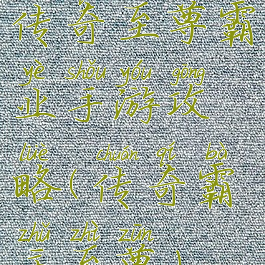 传奇至尊霸
yè shǒu yóu gōng
业手游攻
lüè chuán qí bà
略(传奇霸
zhǔ zhì zūn
主至尊)